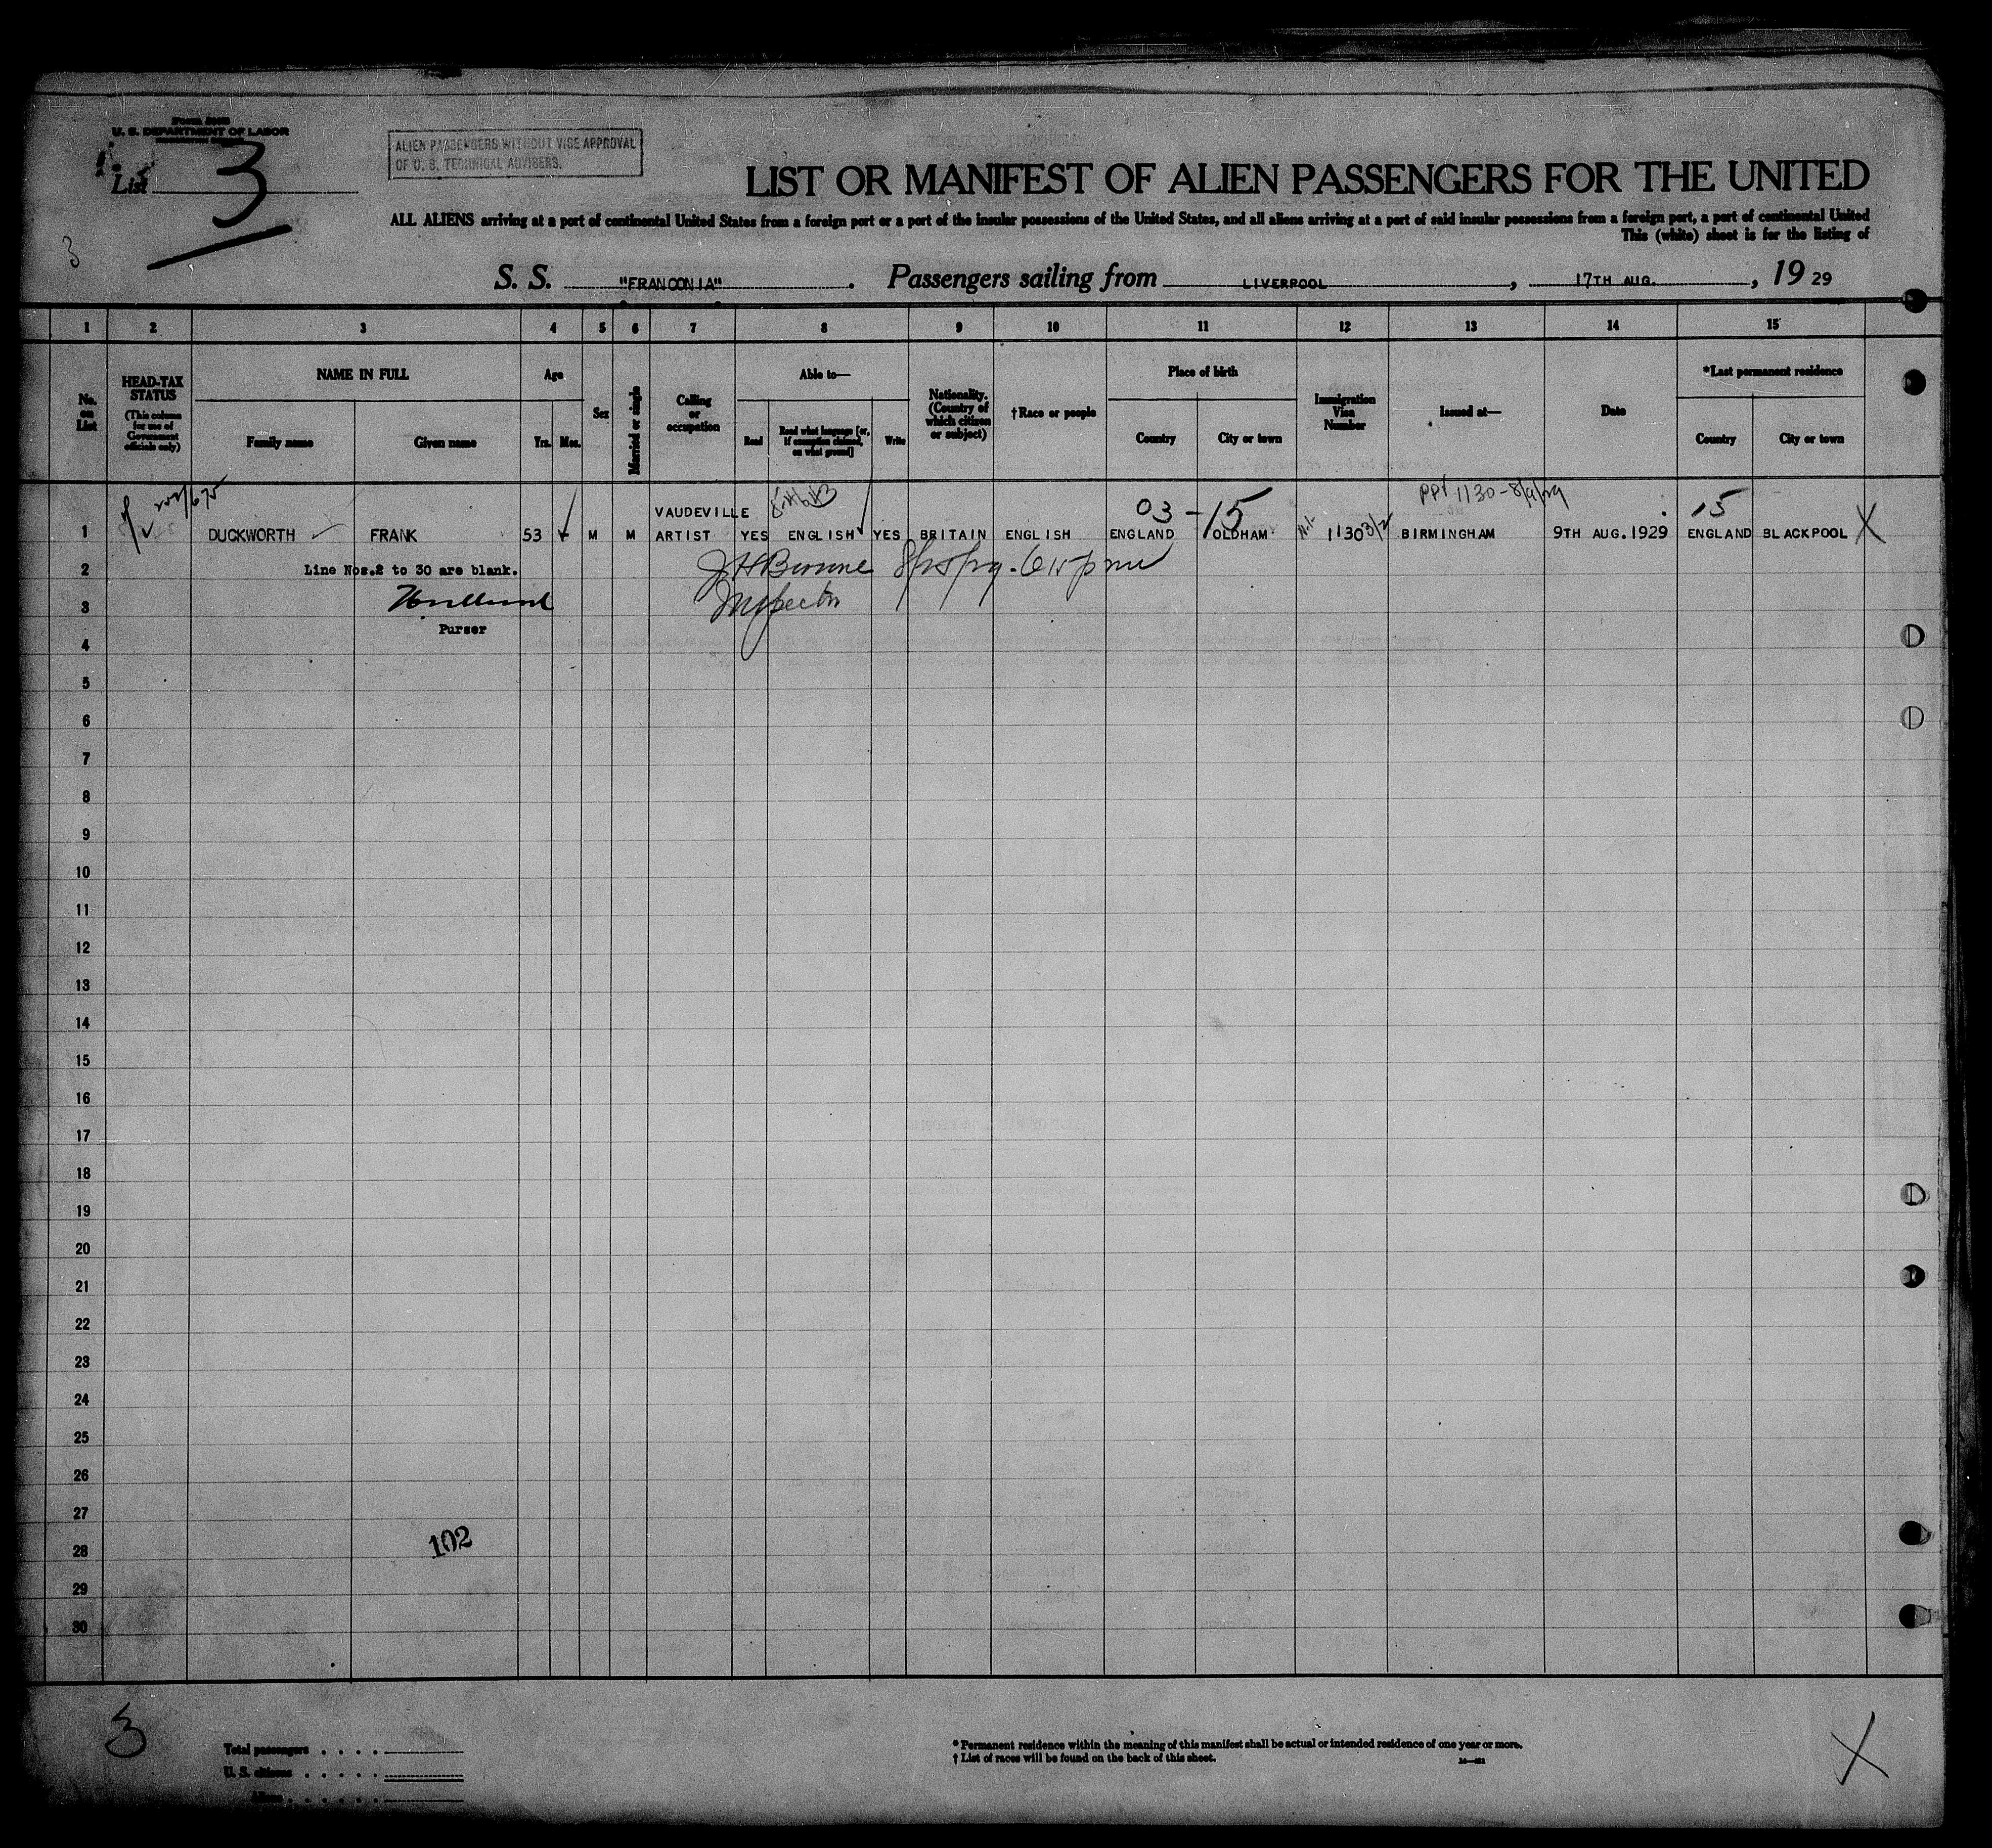 U. S. DEPARTMENT OF LABOR
List 3
3
ALIEN PASSENGERS WITHOUT VISE APPROVAL
OF U. S. TECHNICAL ADVISERS.
LIST OR MANIFEST OF ALIEN PASSENGERS FOR THE UNITED
ALL ALIENS arriving at a port of continental United States from a foreign port or a port of the insular possessions of the United States, and all aliens arriving at a port of said insular possessions from a foreign port, a port of continental United
This (white) sheet is for the listing of
S. S. "FRANCONIA". Passengers sailing from LIVERPOOL, 17TH AUG., 19 29
1 2 3 4 5 6 7 8 9 10 11 12 13 14 15
No. on List
HEAD-TAX STATUS
(This column for use of Government officials only)
NAME IN FULL
Family name Given name
Age
Yrs. Mos.
Sex
Married or single
Calling or occupation
Able to—
Read Read what language [or, if exemption claimed, on what ground] Write
Nationality. (Country of which citizen or subject)
†Race or people
Place of birth
Country City or town
Immigration Visa Number
Issued at—
Date
*Last permanent residence
Country City or town
03 - 15 PPT 1130 - 15
1 DUCKWORTH FRANK 53 M M VAUDEVILLE ARTIST YES ENGLISH YES BRITAIN ENGLISH ENGLAND OLDHAM 1130 BIRMINGHAM 9TH AUG. 1929 ENGLAND BLACKPOOL X
2 Line Nos. 2 to 30 are blank.
3 Inspector
Purser
4
5
6
7
8
9
10
11
12
13
14
15
16
17
18
19
20
21
22
23
24
25
26
27
28 102
29
30
3
Total passengers
U. S. citizens
Aliens
* Permanent residence within the meaning of this manifest shall be actual or intended residence of one year or more.
† List of races will be found on the back of this sheet.
X